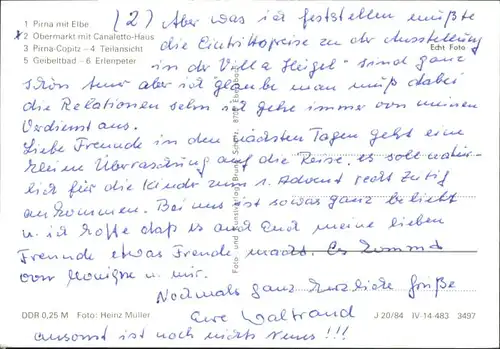 1 Pirna mit Elbe
x2 Obermarkt mit Canaletto-Haus
3 Pirna-Copitz – 4 Teilansicht
5 Geibeltbad – 6 Erlenpeter
Echt Foto
(2) Aber was ich feststellen mußte
die Eintrittspreise zu der Ausstellung
in der Villa Hügel" sind ganz
schön teur aber ich glaube man muß dabei
die Relationen sehn ich gehe immer von meinen
Verdienst aus.
Liebe Freunde in den nächsten Tagen geht eine
kleine Überraschung auf die Reise. es soll natür-
lich für die Kinder zum 1. Advent recht Zeitig
ankommen. Bei uns ist sowas ganz beliebt
u. ich hoffe daß es auch Euch meine lieben
Freunde etwas Freude macht. Es kommt
von Monique u. mir.
Nochmals ganz herzliche Grüße
Eure Waltraud
ansonst ist noch nichts Neues !!!
Foto- und Kunstverlag Bruno Scholz,
DDR 0,25 M Foto: Heinz Müller
J 20/84 IV-14-483 3497